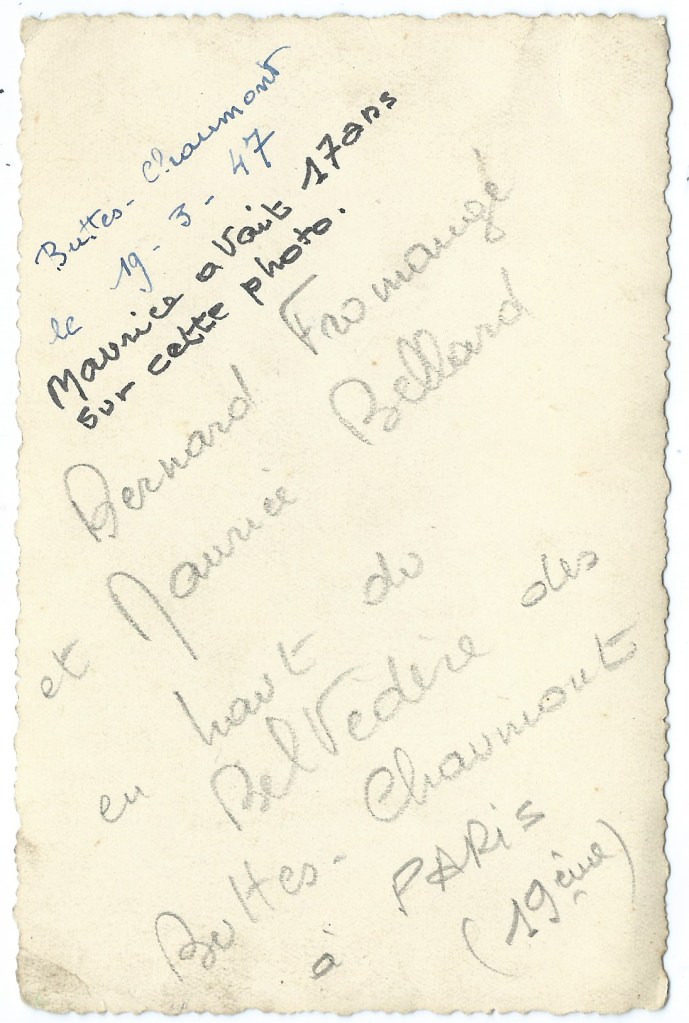 Buttes-Chaumont
le 19-3-47
Maurice avait 17 ans
sur cette photo.
Bernard Fromangé
et Maurice Bellard
en haut du
Belvédère des
Buttes-Chaumont
à PARIS
(19ème)